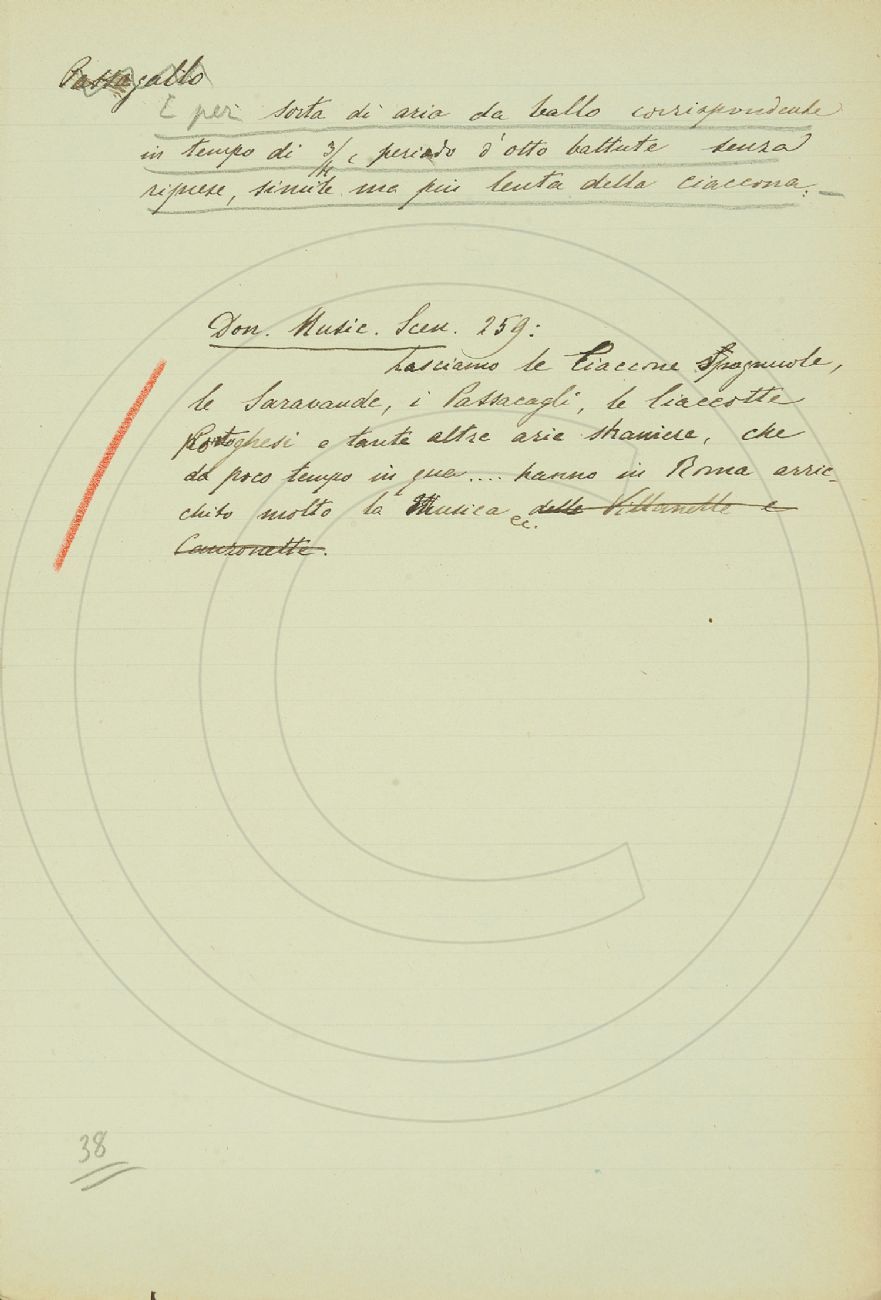 Passagallo
E per sorta di aria da ballo corrispondente
in tempo di 3/4, periodo d'otto battute senza
riprese, simile ma più lenta della ciaccona. —
Don. Music. Scen. 259:
Lasciamo le Ciaccone Spagnuole,
le Saravande, i Passacagli, le Ciaccotte
Portoghesi e tante altre arie straniere, che
da poco tempo in qua .... hanno in Roma arric-
chito molto la Musica ec. delle Villanelle e
Canzonette.
38